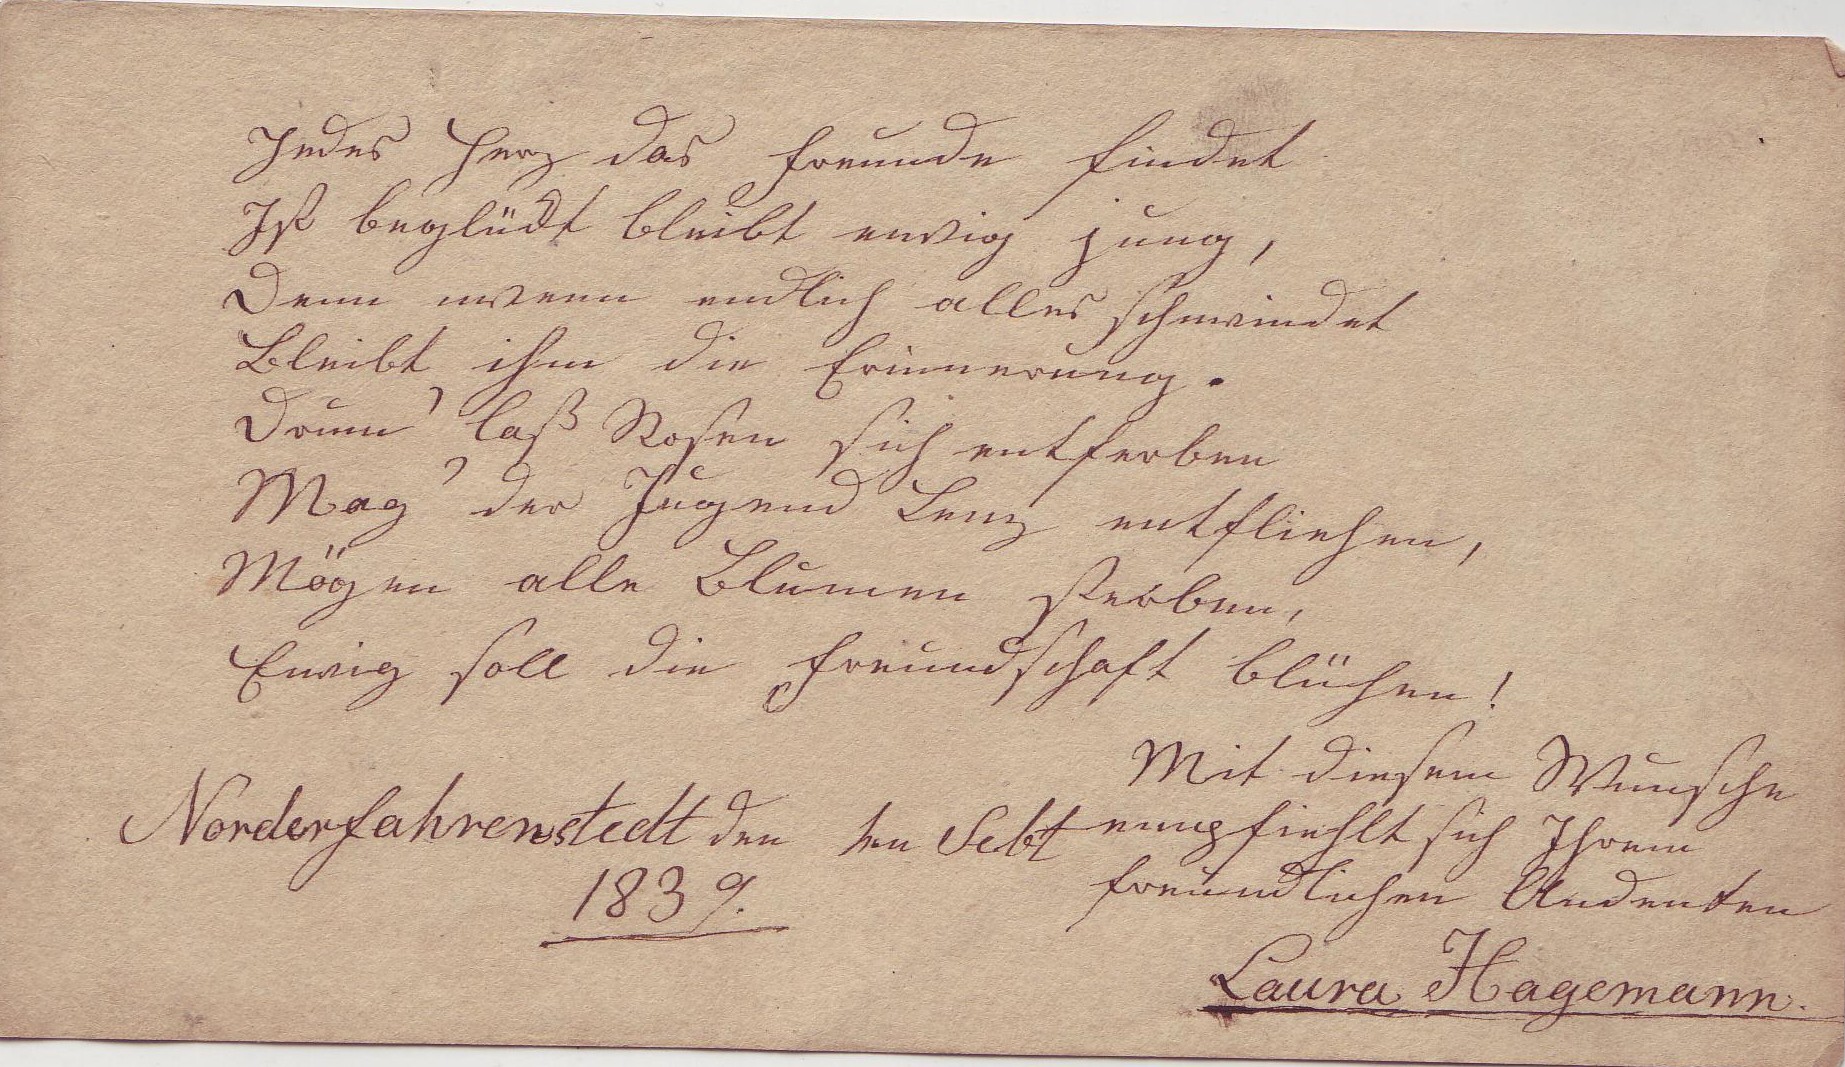 Jedes Herz das Freunde findet
Ist beglückt bleibt ewig jung,
Denn wenn endlich alles schwindet
Bleibt ihm die Erinnerung.
Drum' laß Rosen sich entferben
Mag' der Jugend Lenz entfliehen,
Mögen alle Blumen sterben,
Ewig soll die Freundschaft blühen!
Mit diesem Wunsche
empfiehlt sich Ihrem
freundlichen Andenken
Laura Hagemann.
Norderfahrenstedt den ten Sebt
1839.